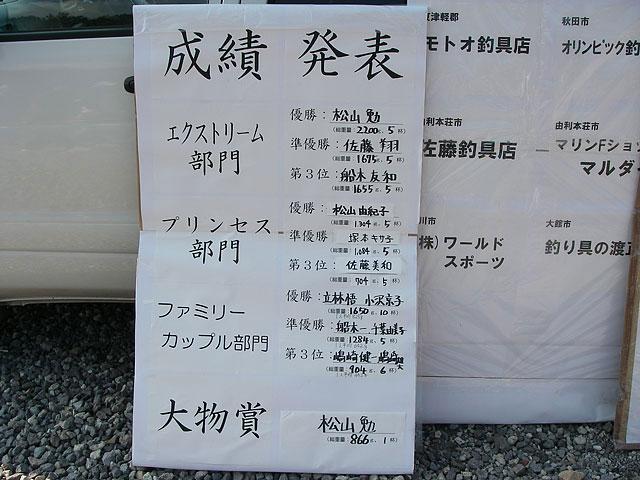 成績 発表
エクストリーム
部門
優勝：松山 勉
(総重量 2200g. 5杯)
準優勝：佐藤 翔羽
(総重量 1675g. 5杯)
第３位：船木友和
(総重量 1655g. 5杯)
プリンセス
部門
優勝：松山由紀子
(総重量 1304g. 5杯)
準優勝 塚本キサ子
(総重量 1,084g. 5杯)
第３位：佐藤美和
(総重量 904g. 5杯)
ファミリー
カップル部門
優勝：立林悟 小沢京子
(総重量 1650g. 10杯)
準優勝：船木一
(総重量 1284g. 5杯)
第３位：
(総重量 904g. 6杯)
大物賞
松山 勉
(総重量 866g. 1杯)
津軽郡
モトオ釣具店
秋田市
オリンピック釣
由利本荘市
佐藤釣具店
由利本荘市
マリンFショッ
マルダイ
川市
株)ワールド
スポーツ
大館市
釣り具の渡